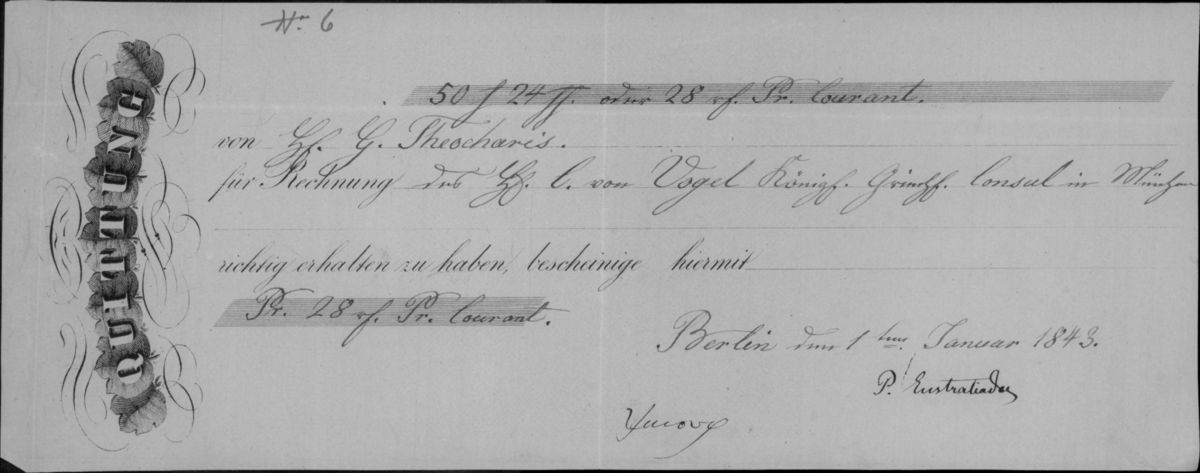 No 6
QUITTUNG
50 f 24 oder 28 rf. Pr. Courant.
von G. Theocharis.
für Rechnung des C. von Vogel Königl. Griech. Consul in München
richtig erhalten zu haben, bescheinige hiermit
Pr. 28 rf. Pr. Courant.
Berlin den 1ten Januar 1843.
P. Eustratiades